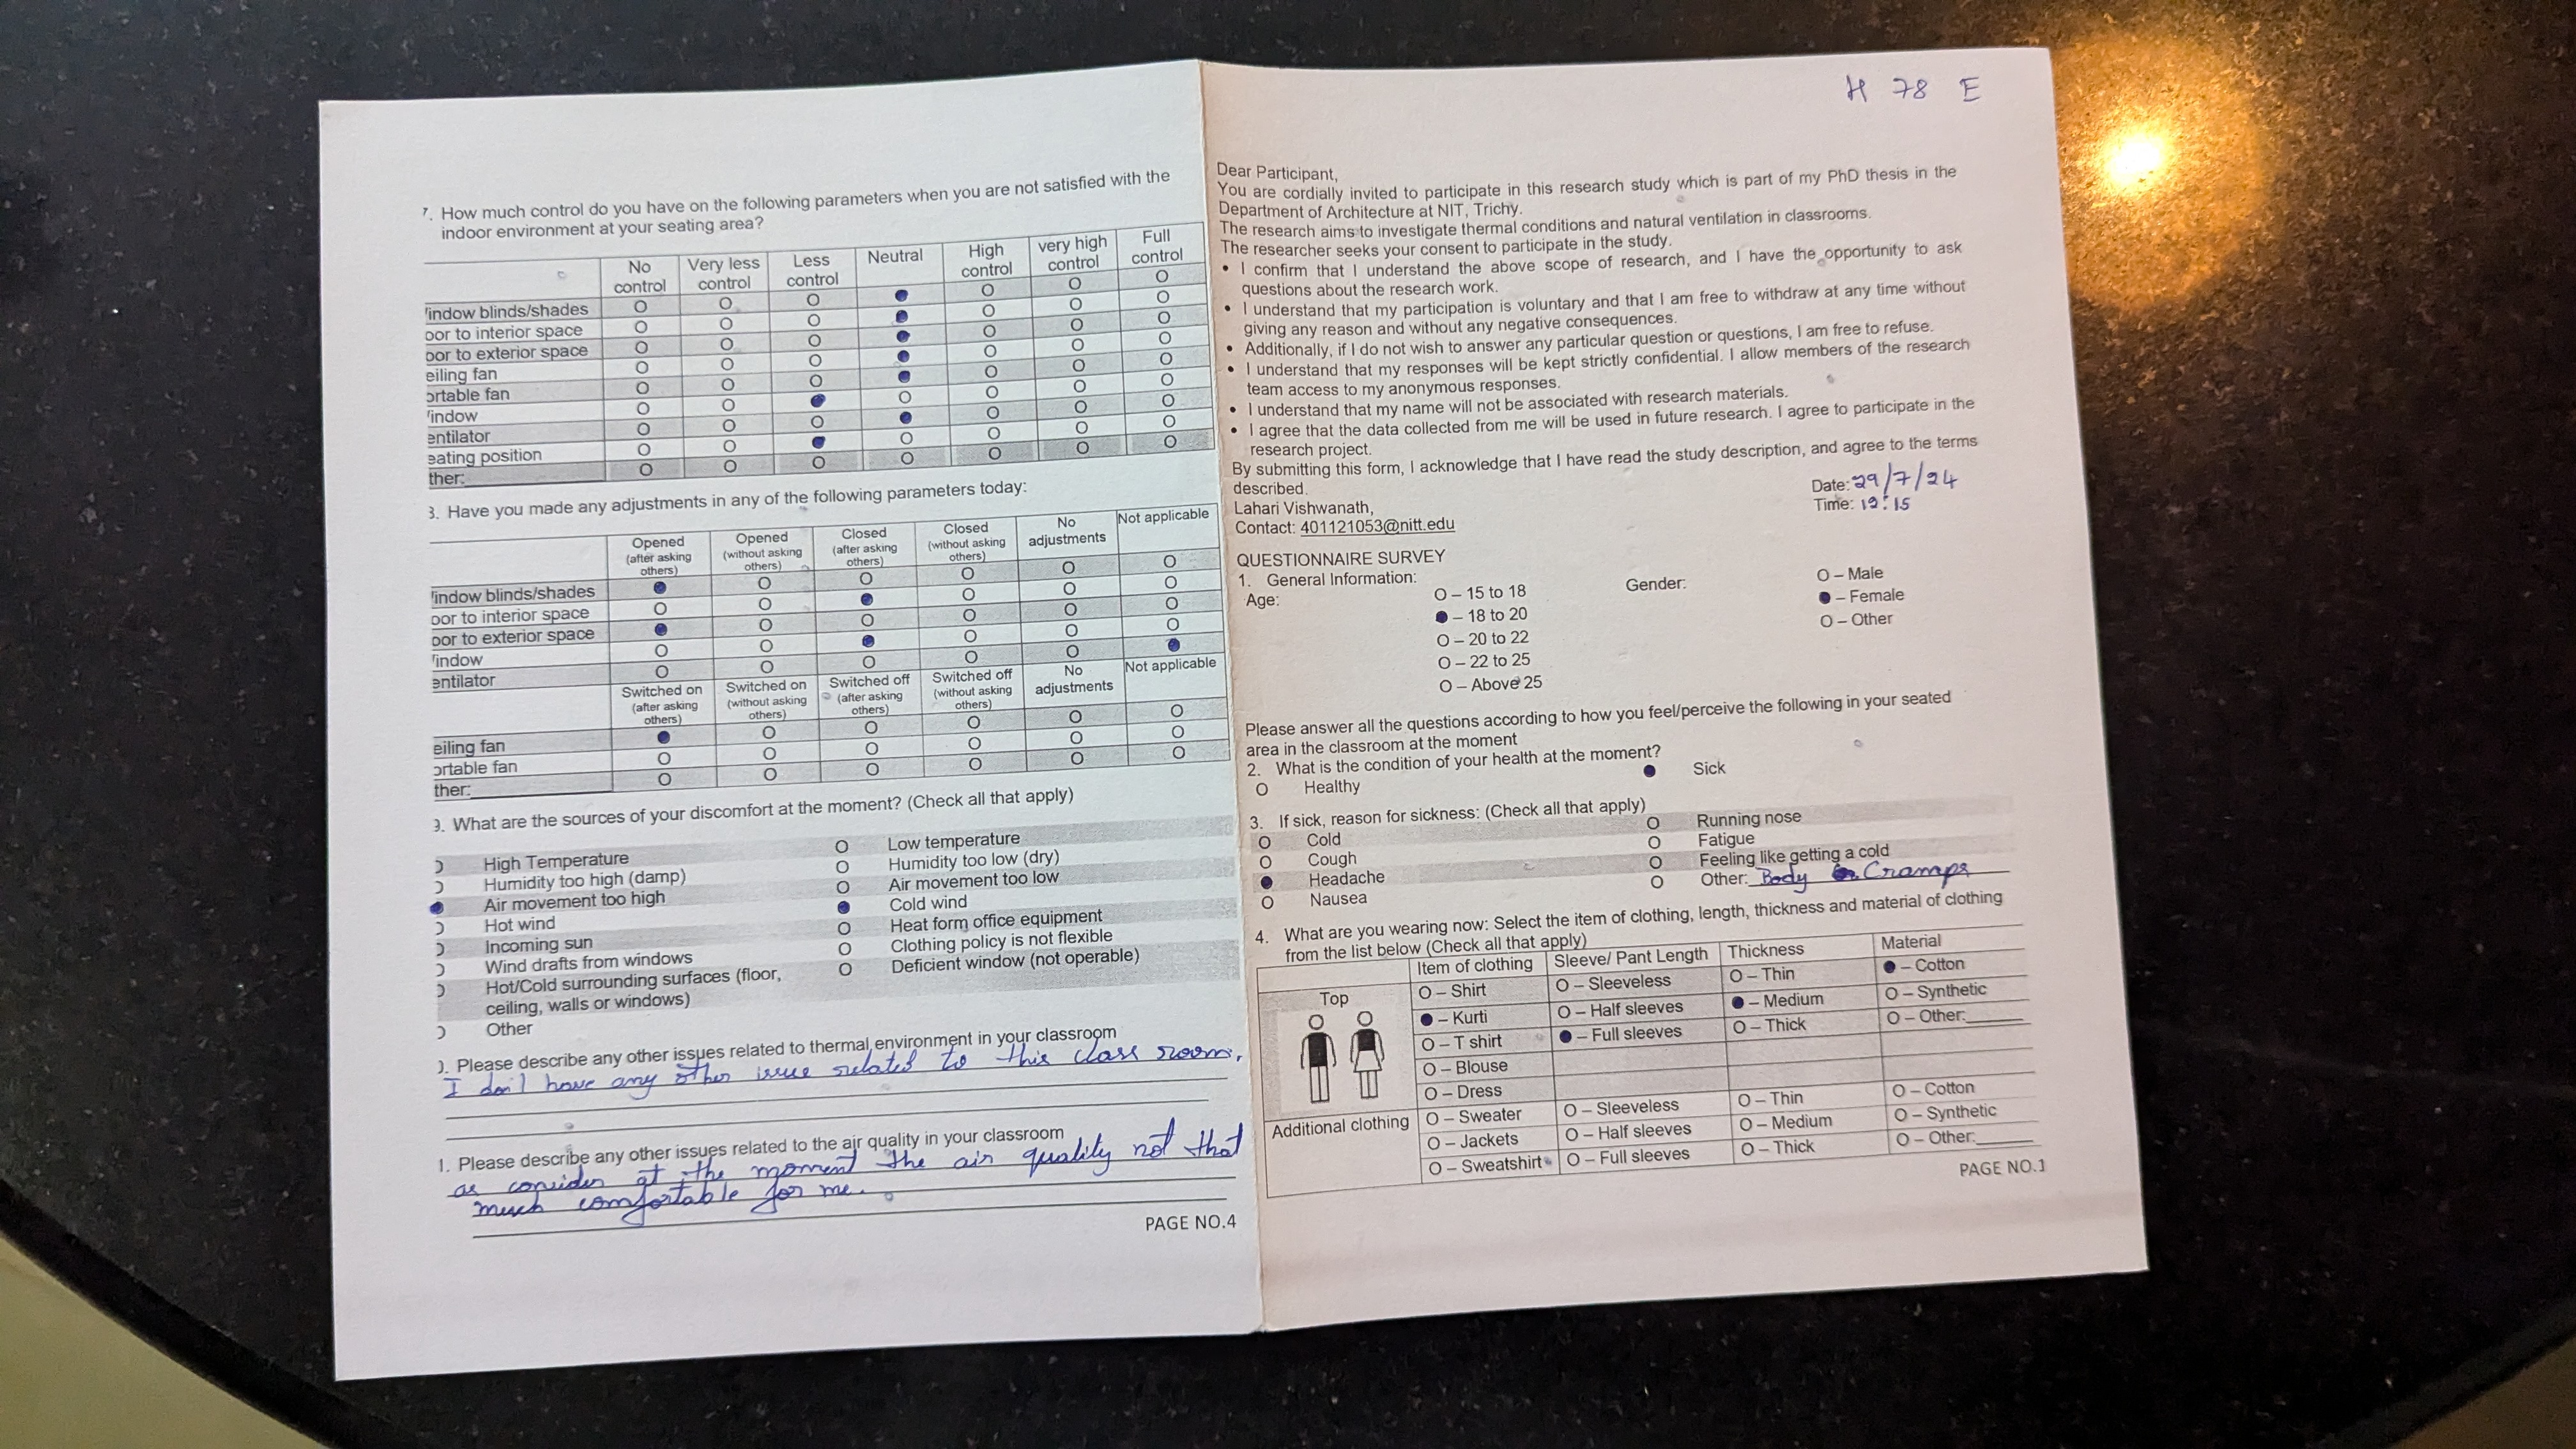 7. How much control do you have on the following parameters when you are not satisfied with the
indoor environment at your seating area?
No control Very less control Less control Neutral High control very high control Full control
indow blinds/shades O O O ● O O O
oor to interior space O O O ● O O O
oor to exterior space O O O ● O O O
eiling fan O O O ● O O O
ortable fan O O O ● O O O
indow O O ● O O O O
entilator O O O ● O O O
eating position O O ● O O O O
ther: O O O O O O O
3. Have you made any adjustments in any of the following parameters today:
Opened (after asking others) Opened (without asking others) Closed (after asking others) Closed (without asking others) No adjustments Not applicable
indow blinds/shades ● O O O O O
oor to interior space O O ● O O O
oor to exterior space ● O O O O O
indow O O ● O O O
entilator O O O O O ●
Switched on (after asking others) Switched on (without asking others) Switched off (after asking others) Switched off (without asking others) No adjustments Not applicable
eiling fan ● O O O O O
ortable fan O O O O O O
ther: O O O O O O
9. What are the sources of your discomfort at the moment? (Check all that apply)
High Temperature O Low temperature
Humidity too high (damp) O Humidity too low (dry)
● Air movement too high O Air movement too low
Hot wind ● Cold wind
Incoming sun O Heat form office equipment
Wind drafts from windows O Clothing policy is not flexible
Hot/Cold surrounding surfaces (floor, O Deficient window (not operable)
ceiling, walls or windows)
Other
). Please describe any other issues related to thermal environment in your classroom
I don't have any other issue related to this class room.
1. Please describe any other issues related to the air quality in your classroom
as consider at the moment the air quality not that
much comfortable for me.
PAGE NO.4
H 78 E
Dear Participant,
You are cordially invited to participate in this research study which is part of my PhD thesis in the
Department of Architecture at NIT, Trichy.
The research aims to investigate thermal conditions and natural ventilation in classrooms.
The researcher seeks your consent to participate in the study.
• I confirm that I understand the above scope of research, and I have the opportunity to ask
questions about the research work.
• I understand that my participation is voluntary and that I am free to withdraw at any time without
giving any reason and without any negative consequences.
• Additionally, if I do not wish to answer any particular question or questions, I am free to refuse.
• I understand that my responses will be kept strictly confidential. I allow members of the research
team access to my anonymous responses.
• I understand that my name will not be associated with research materials.
• I agree that the data collected from me will be used in future research. I agree to participate in the
research project.
By submitting this form, I acknowledge that I have read the study description, and agree to the terms
described.
Date: 29/7/24
Lahari Vishwanath,
Time: 12:15
Contact: 401121053@nitt.edu
QUESTIONNAIRE SURVEY
1. General Information:
Age:
O – 15 to 18
● – 18 to 20
O – 20 to 22
O – 22 to 25
O – Above 25
Gender:
O – Male
● – Female
O – Other
Please answer all the questions according to how you feel/perceive the following in your seated
area in the classroom at the moment
2. What is the condition of your health at the moment?
O Healthy ● Sick
3. If sick, reason for sickness: (Check all that apply)
O Cold O Running nose
O Cough O Fatigue
● Headache O Feeling like getting a cold
O Nausea O Other: Body Cramps
4. What are you wearing now: Select the item of clothing, length, thickness and material of clothing
from the list below (Check all that apply)
Item of clothing Sleeve/ Pant Length Thickness Material
Top
O – Shirt O – Sleeveless O – Thin ● – Cotton
● – Kurti O – Half sleeves ● – Medium O – Synthetic
O – T shirt ● – Full sleeves O – Thick O – Other:
O – Blouse
O – Dress
Additional clothing
O – Sweater O – Sleeveless O – Thin O – Cotton
O – Jackets O – Half sleeves O – Medium O – Synthetic
O – Sweatshirt O – Full sleeves O – Thick O – Other:
PAGE NO.1